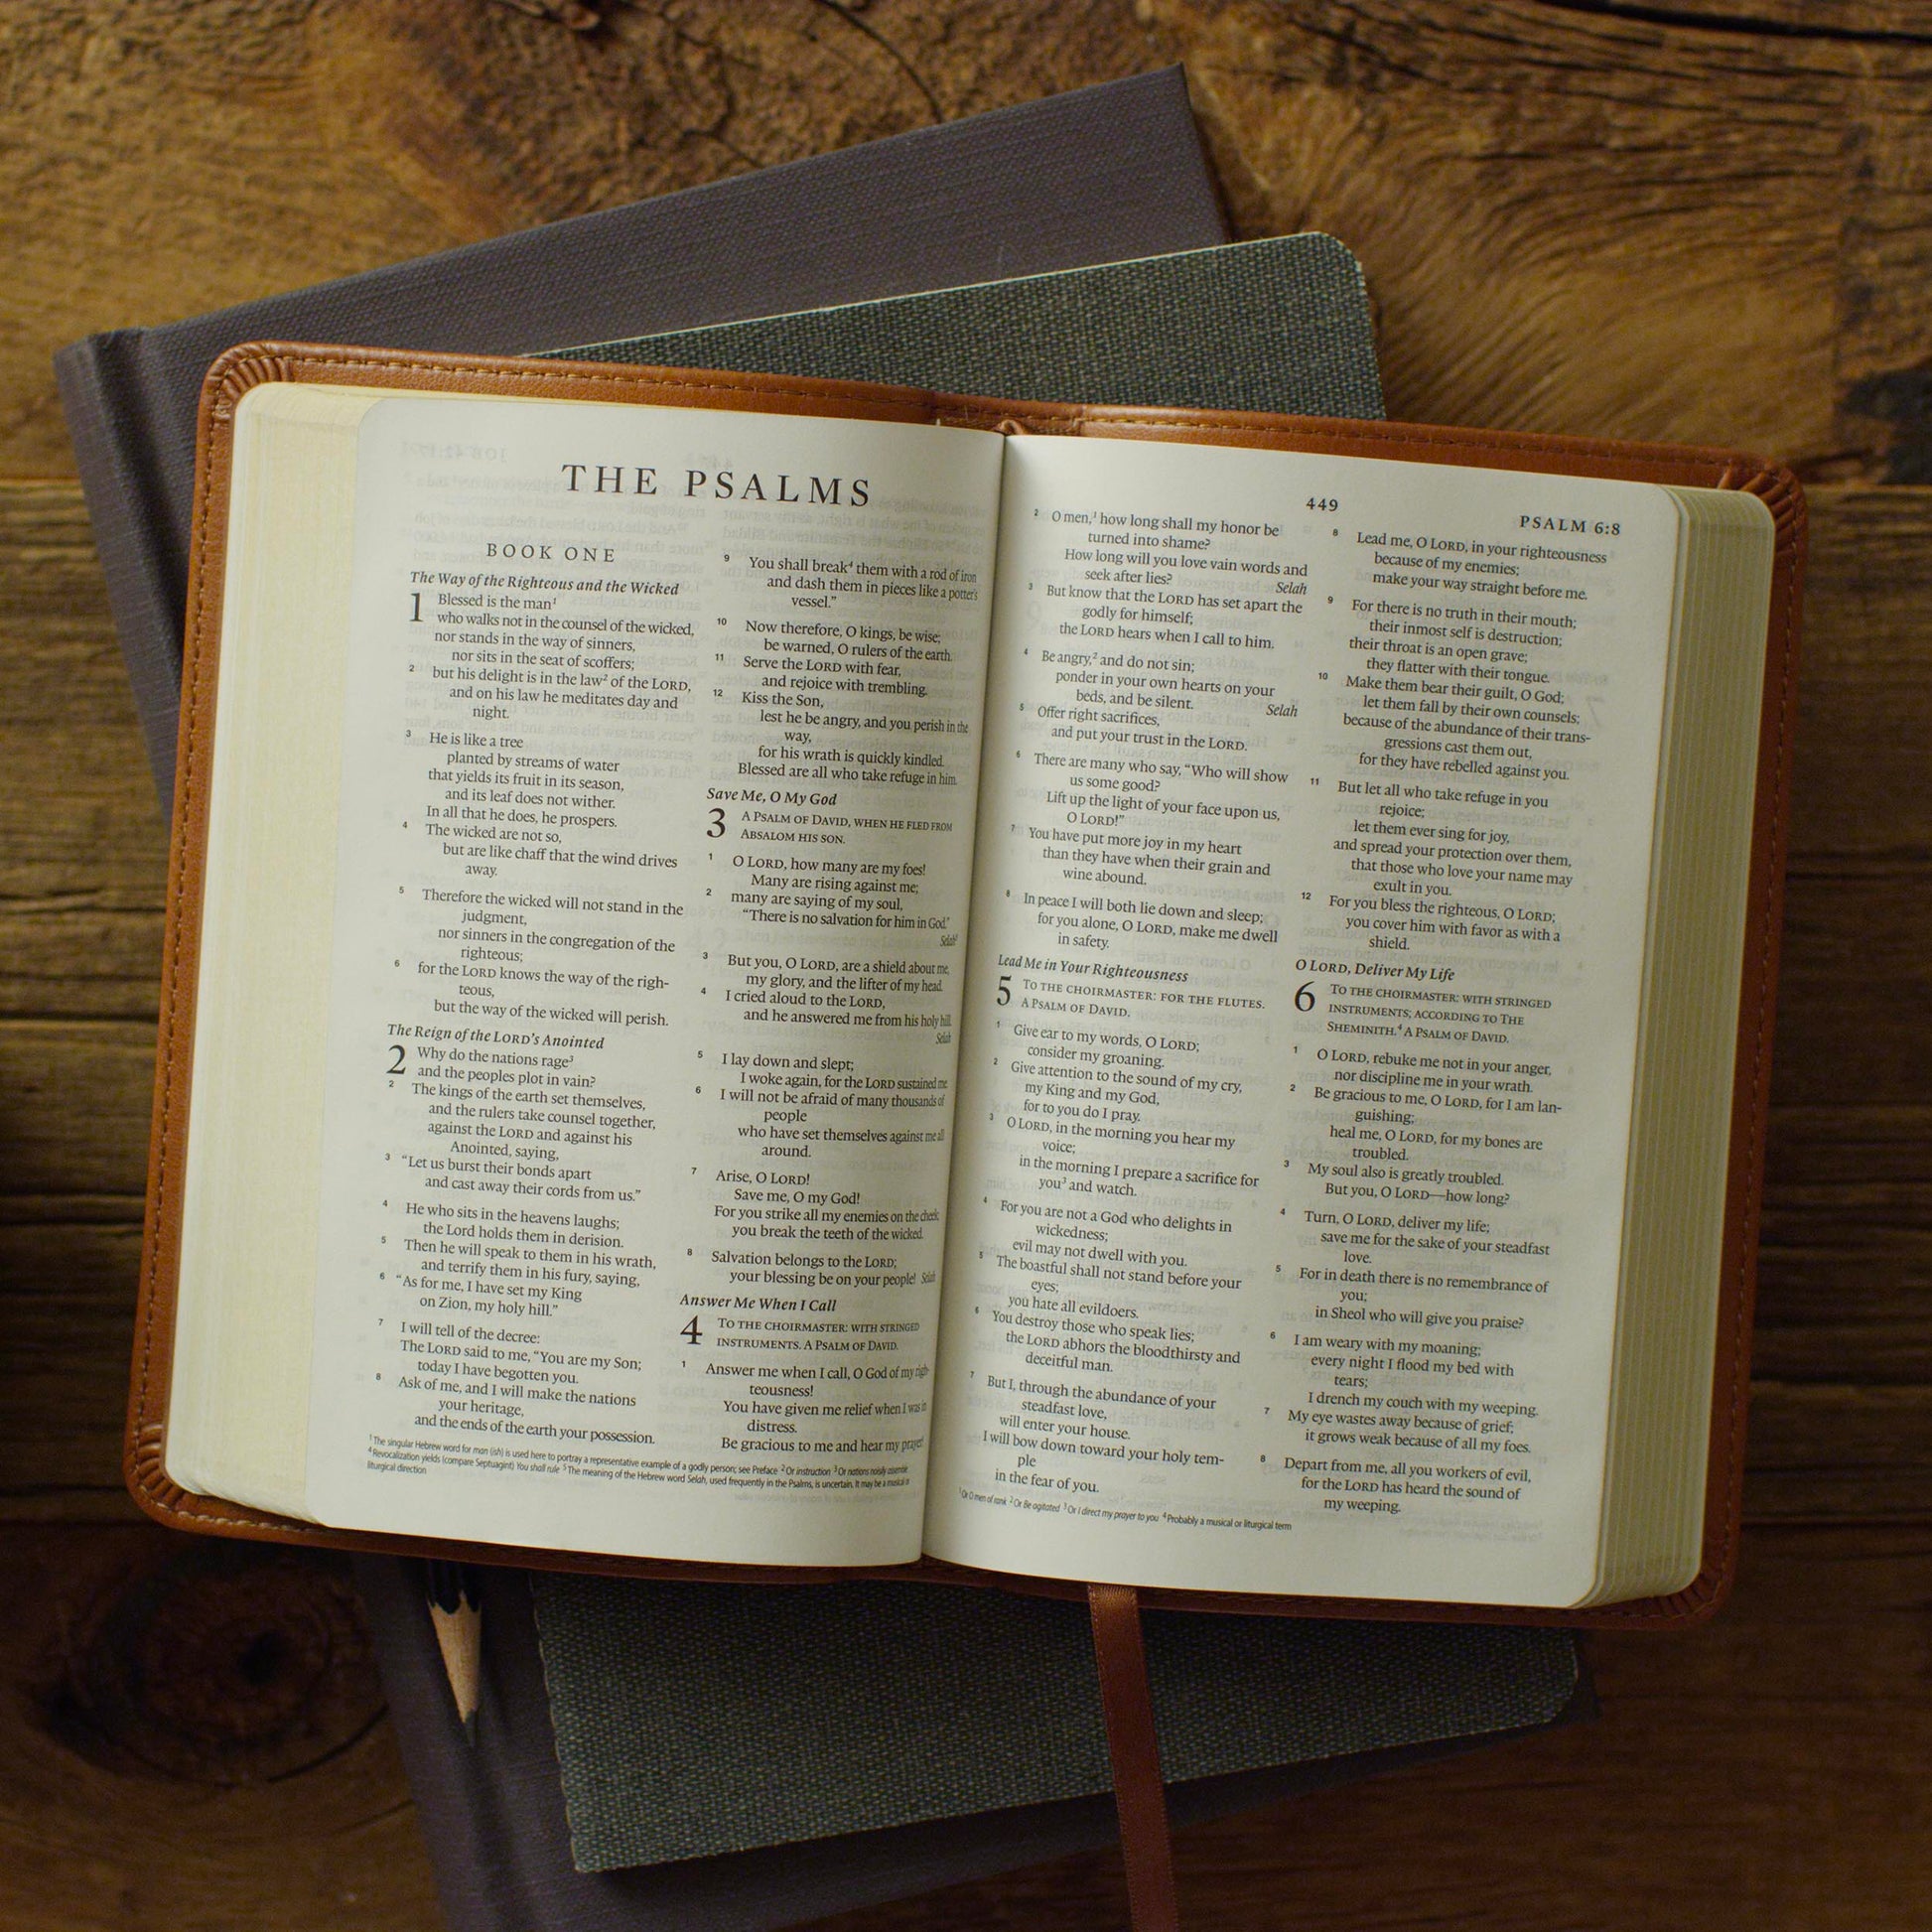 THE PSALMS
BOOK ONE
The Way of the Righteous and the Wicked
1 Blessed is the man¹
who walks not in the counsel of the wicked,
nor stands in the way of sinners,
nor sits in the seat of scoffers;
2 but his delight is in the law² of the LORD,
and on his law he meditates day and
night.
3 He is like a tree
planted by streams of water
that yields its fruit in its season,
and its leaf does not wither.
In all that he does, he prospers.
4 The wicked are not so,
but are like chaff that the wind drives
away.
5 Therefore the wicked will not stand in the
judgment,
nor sinners in the congregation of the
righteous;
6 for the LORD knows the way of the righ-
teous,
but the way of the wicked will perish.
The Reign of the LORD's Anointed
2 Why do the nations rage³
and the peoples plot in vain?
2 The kings of the earth set themselves,
and the rulers take counsel together,
against the LORD and against his
Anointed, saying,
3 “Let us burst their bonds apart
and cast away their cords from us.”
4 He who sits in the heavens laughs;
the Lord holds them in derision.
5 Then he will speak to them in his wrath,
and terrify them in his fury, saying,
6 “As for me, I have set my King
on Zion, my holy hill.”
7 I will tell of the decree:
The LORD said to me, “You are my Son;
today I have begotten you.
8 Ask of me, and I will make the nations
your heritage,
and the ends of the earth your possession.
9 You shall break⁴ them with a rod of iron
and dash them in pieces like a potter's
vessel.”
10 Now therefore, O kings, be wise;
be warned, O rulers of the earth.
11 Serve the LORD with fear,
and rejoice with trembling.
12 Kiss the Son,
lest he be angry, and you perish in the
way,
for his wrath is quickly kindled.
Blessed are all who take refuge in him.
Save Me, O My God
3 A PSALM OF DAVID, WHEN HE FLED FROM
ABSALOM HIS SON.
1 O LORD, how many are my foes!
Many are rising against me;
2 many are saying of my soul,
“There is no salvation for him in God.”
Selah⁵
3 But you, O LORD, are a shield about me,
my glory, and the lifter of my head.
4 I cried aloud to the LORD,
and he answered me from his holy hill.
Selah
5 I lay down and slept;
I woke again, for the LORD sustained me.
6 I will not be afraid of many thousands of
people
who have set themselves against me all
around.
7 Arise, O LORD!
Save me, O my God!
For you strike all my enemies on the cheek;
you break the teeth of the wicked.
8 Salvation belongs to the LORD;
your blessing be on your people! Selah
Answer Me When I Call
4 TO THE CHOIRMASTER: WITH STRINGED
INSTRUMENTS. A PSALM OF DAVID.
1 Answer me when I call, O God of my righ-
teousness!
You have given me relief when I was in
distress.
Be gracious to me and hear my prayer!
¹ The singular Hebrew word for man (ish) is used here to portray a representative example of a godly person; see Preface ² Or instruction ³ Or nations noisily assemble
⁴ Revocalization yields (compare Septuagint) You shall rule ⁵ The meaning of the Hebrew word Selah, used frequently in the Psalms, is uncertain. It may be a musical or
liturgical direction
449
PSALM 6:8
2 O men,¹ how long shall my honor be
turned into shame?
How long will you love vain words and
seek after lies? Selah
3 But know that the LORD has set apart the
godly for himself;
the LORD hears when I call to him.
4 Be angry,² and do not sin;
ponder in your own hearts on your
beds, and be silent. Selah
5 Offer right sacrifices,
and put your trust in the LORD.
6 There are many who say, “Who will show
us some good?
Lift up the light of your face upon us,
O LORD!”
7 You have put more joy in my heart
than they have when their grain and
wine abound.
8 In peace I will both lie down and sleep;
for you alone, O LORD, make me dwell
in safety.
Lead Me in Your Righteousness
5 TO THE CHOIRMASTER: FOR THE FLUTES.
A PSALM OF DAVID.
1 Give ear to my words, O LORD;
consider my groaning.
2 Give attention to the sound of my cry,
my King and my God,
for to you do I pray.
3 O LORD, in the morning you hear my
voice;
in the morning I prepare a sacrifice for
you³ and watch.
4 For you are not a God who delights in
wickedness;
evil may not dwell with you.
5 The boastful shall not stand before your
eyes;
you hate all evildoers.
6 You destroy those who speak lies;
the LORD abhors the bloodthirsty and
deceitful man.
7 But I, through the abundance of your
steadfast love,
will enter your house.
I will bow down toward your holy tem-
ple
in the fear of you.
8 Lead me, O LORD, in your righteousness
because of my enemies;
make your way straight before me.
9 For there is no truth in their mouth;
their inmost self is destruction;
their throat is an open grave;
they flatter with their tongue.
10 Make them bear their guilt, O God;
let them fall by their own counsels;
because of the abundance of their trans-
gressions cast them out,
for they have rebelled against you.
11 But let all who take refuge in you
rejoice;
let them ever sing for joy,
and spread your protection over them,
that those who love your name may
exult in you.
12 For you bless the righteous, O LORD;
you cover him with favor as with a
shield.
O LORD, Deliver My Life
6 TO THE CHOIRMASTER: WITH STRINGED
INSTRUMENTS; ACCORDING TO THE
SHEMINITH.⁴ A PSALM OF DAVID.
1 O LORD, rebuke me not in your anger,
nor discipline me in your wrath.
2 Be gracious to me, O LORD, for I am lan-
guishing;
heal me, O LORD, for my bones are
troubled.
3 My soul also is greatly troubled.
But you, O LORD—how long?
4 Turn, O LORD, deliver my life;
save me for the sake of your steadfast
love.
5 For in death there is no remembrance of
you;
in Sheol who will give you praise?
6 I am weary with my moaning;
every night I flood my bed with
tears;
I drench my couch with my weeping.
7 My eye wastes away because of grief;
it grows weak because of all my foes.
8 Depart from me, all you workers of evil,
for the LORD has heard the sound of
my weeping.
¹ Or O men of rank ² Or Be agitated ³ Or I direct my prayer to you ⁴ Probably a musical or liturgical term